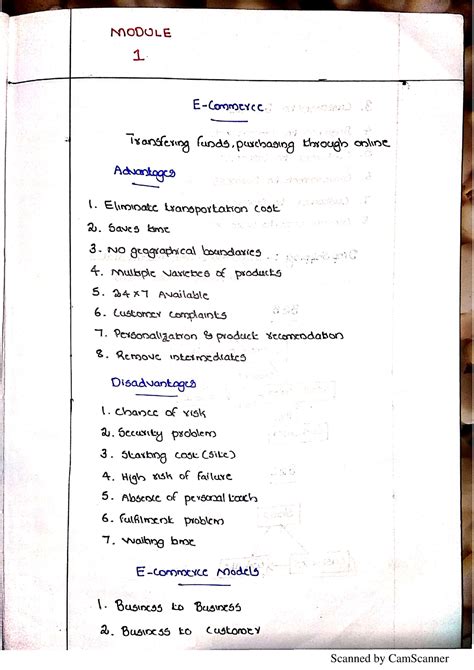 MODULE
1
E-Commerce
Transfering funds, purchasing through online
Advantages
1. Eliminate transportation cost
2. Saves time
3. No geographical boundaries.
4. Multiple varieties of products
5. 24x7 Available
6. Customer complaints
7. Personalization & product recomendation
8. Remove intermediates
Disadvantages
1. Chance of risk
2. Security problem
3. Starting cost (Site)
4. High risk of failure
5. Absence of personal touch
6. Fulfilment problem
7. Waiting time
E-commerce Models
1. Business to Business
2. Business to Customer
Scanned by CamScanner